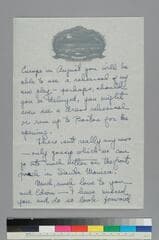 Europe in August you will be
able to see a rehearsal of my
new play – perhaps, should
you be delayed, you might
even see a dress rehearsal
or run up to Boston for the
opening.
There isn't really any news
– only gossip which we can
go into much better on the front
porch in Santa Monica.
Much, much love to you
and Edwin – I have missed
you and do so look forward